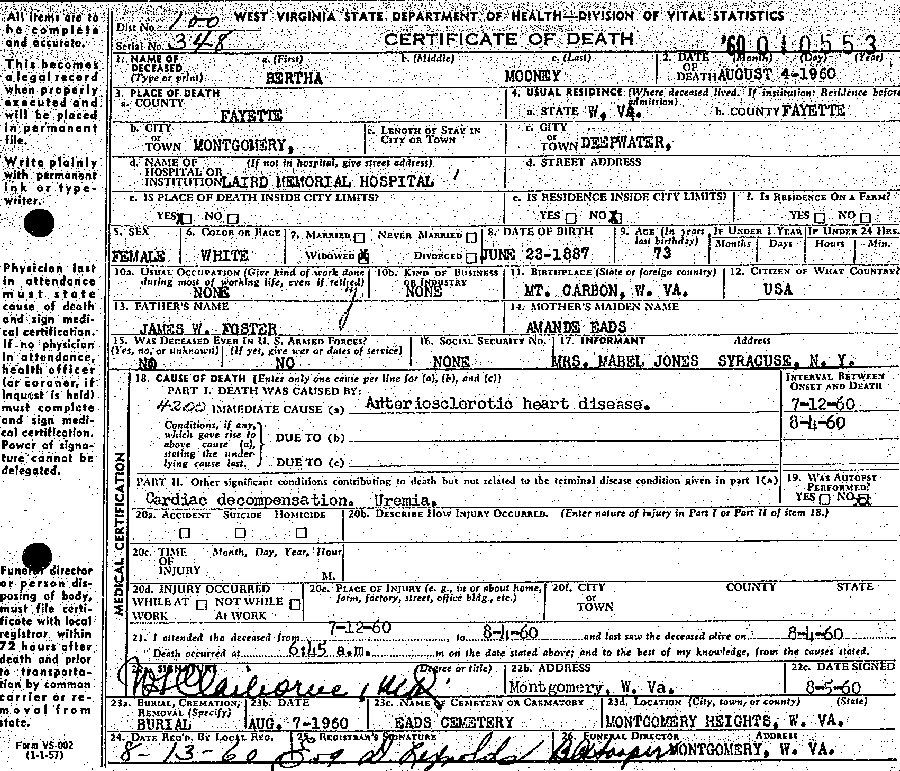 All items are to be complete and accurate.
This becomes a legal record when properly executed and will be placed in permanent file.
Write plainly with permanent ink or typewriter.
Physician last in attendance must state cause of death and sign medical certification. If no physician in attendance, health officer (or coroner, if inquest is held) must complete and sign medical certification. Power of signature cannot be delegated.
Funeral director or person disposing of body, must file certificate with local registrar within 72 hours after death and prior to transportation by common carrier or removal from state.
Form VS-002
(1-1-57)
WEST VIRGINIA STATE DEPARTMENT OF HEALTH—DIVISION OF VITAL STATISTICS
Dist No. 100
Serial No. 348
CERTIFICATE OF DEATH
'60 010553
1. NAME OF DECEASED (Type or print) a. (First) BERTHA b. (Middle) c. (Last) MOONEY
2. DATE OF DEATH (Month) (Day) (Year) AUGUST 4-1960
3. PLACE OF DEATH
a. COUNTY FAYETTE
4. USUAL RESIDENCE (Where deceased lived. If institution: Residence before admission)
a. STATE W. VA. b. COUNTY FAYETTE
b. CITY or TOWN MONTGOMERY,
c. LENGTH OF STAY IN CITY OR TOWN
c. CITY or TOWN DEEPWATER,
d. NAME OF HOSPITAL OR INSTITUTION (If not in hospital, give street address) LAIRD MEMORIAL HOSPITAL
d. STREET ADDRESS
e. IS PLACE OF DEATH INSIDE CITY LIMITS?
YES X NO
e. IS RESIDENCE INSIDE CITY LIMITS?
YES NO X
f. IS RESIDENCE ON A FARM?
YES NO
5. SEX FEMALE
6. COLOR OR RACE WHITE
7. MARRIED NEVER MARRIED WIDOWED X DIVORCED
8. DATE OF BIRTH JUNE 23-1887
9. AGE (In years last birthday) 73
IF UNDER 1 YEAR Months Days
IF UNDER 24 HRS. Hours Min.
10a. USUAL OCCUPATION (Give kind of work done during most of working life, even if retired) NONE
10b. KIND OF BUSINESS OR INDUSTRY NONE
11. BIRTHPLACE (State or foreign country) MT. CARBON, W. VA.
12. CITIZEN OF WHAT COUNTRY? USA
13. FATHER'S NAME JAMES W. FOSTER
14. MOTHER'S MAIDEN NAME AMANDE EADS
15. WAS DECEASED EVER IN U. S. ARMED FORCES? (Yes, no, or unknown) NO (If yes, give war or dates of service) NO
16. SOCIAL SECURITY No. NONE
17. INFORMANT Address MRS. MABEL JONES SYRACUSE, N. Y.
MEDICAL CERTIFICATION
18. CAUSE OF DEATH (Enter only one cause per line for (a), (b), and (c))
INTERVAL BETWEEN ONSET AND DEATH
PART I. DEATH WAS CAUSED BY:
4200 IMMEDIATE CAUSE (a) Arteriosclerotic heart disease. 7-12-60
8-4-60
Conditions, if any, which gave rise to above cause (a), stating the underlying cause last.
DUE TO (b)
DUE TO (c)
PART II. Other significant conditions contributing to death but not related to the terminal disease condition given in part I(A)
Cardiac decompensation. Uremia.
19. WAS AUTOPSY PERFORMED?
YES NO X
20a. ACCIDENT SUICIDE HOMICIDE
20b. DESCRIBE HOW INJURY OCCURRED. (Enter nature of injury in Part I or Part II of item 18.)
20c. TIME OF INJURY Month, Day, Year, Hour M.
20d. INJURY OCCURRED
WHILE AT WORK NOT WHILE AT WORK
20e. PLACE OF INJURY (e. g., in or about home, farm, factory, street, office bldg., etc.)
20f. CITY or TOWN COUNTY STATE
21. I attended the deceased from 7-12-60 to 8-4-60 and last saw the deceased alive on 8-4-60
Death occurred at 6:45 a.m. m on the date stated above; and to the best of my knowledge, from the causes stated.
22a. SIGNATURE (Degree or title) Claiborne, M.D.
22b. ADDRESS Montgomery, W. Va.
22c. DATE SIGNED 8-5-60
23a. BURIAL, CREMATION, REMOVAL (Specify) BURIAL
23b. DATE AUG. 7-1960
23c. NAME OF CEMETERY OR CREMATORY EADS CEMETERY
23d. LOCATION (City, town, or county) (State) MONTGOMERY HEIGHTS, W. VA.
24. DATE REC'D. BY LOCAL REG. 8-13-60
25. REGISTRAR'S SIGNATURE
26. FUNERAL DIRECTOR ADDRESS MONTGOMERY, W. VA.